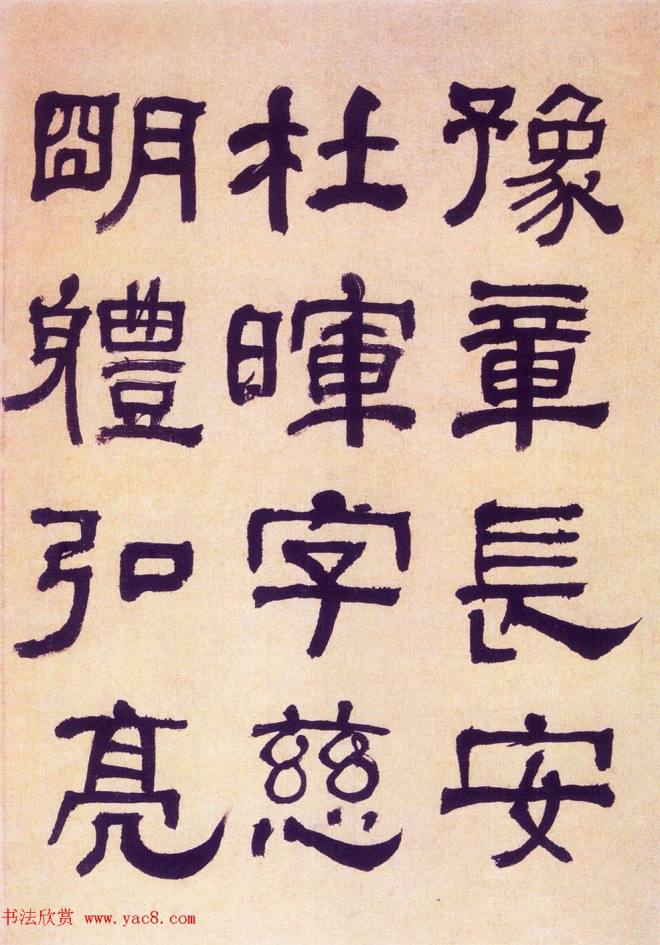 豫章長安
杜暉字慈
朙體弘亮
书法欣赏 www.yac8.com